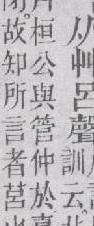 从艸呂聲訓云
桓公與管仲於
故知所言者莒